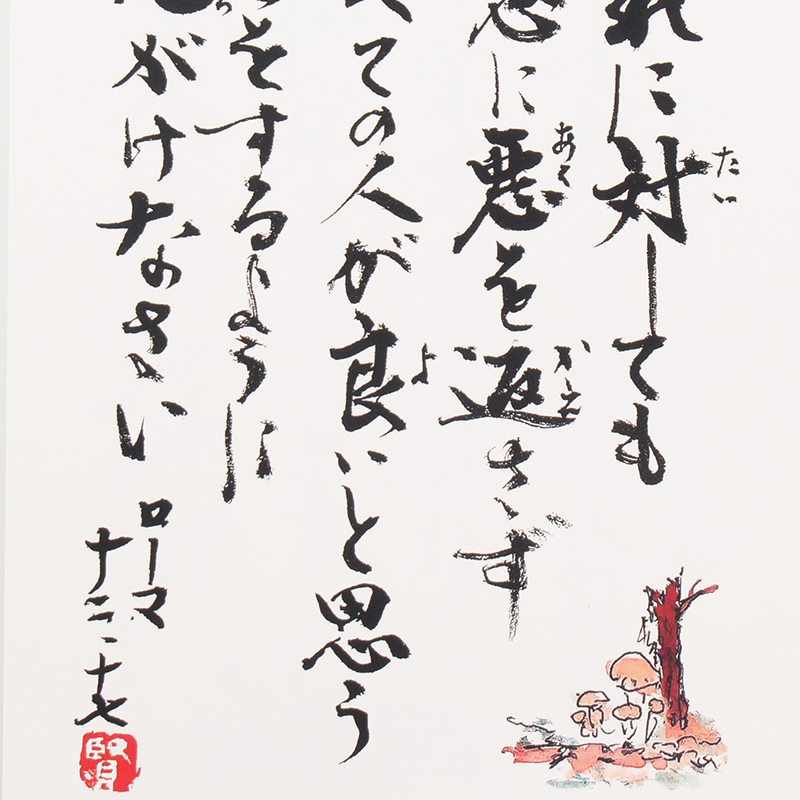 れに対しても
たい
悪に悪を返さず
あく
かえ
ての人が良いと思う
よ
をするように
がけなさい
ローマ
十二・十七
賢